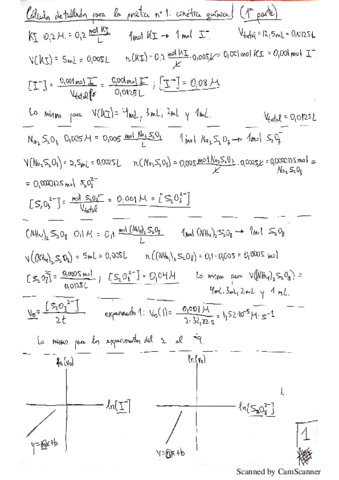 Cálculo detallado para la práctica nº 1. cinética química (1ª parte)
KI 0,2 M = 0,2 mol KI / L 1mol KI → 1 mol I⁻ Vtotal = 12,5mL = 0,0125L
V(KI) = 5mL = 0,005L n(KI) = 0,2 mol KI / L · 0,005L = 0,001 mol KI = 0,001 mol I⁻
[I⁻] = 0,001 mol I⁻ / Vtotal = 0,001 mol I⁻ / 0,0125L ; [I⁻] = 0,08 M
Lo mismo para V(KI) = 4mL, 3mL, 2mL y 1mL. Vtotal = 0,0125L
Na₂S₂O₃ 0,005M = 0,005 mol Na₂S₂O₃ / L 1 mol Na₂S₂O₃ → 1mol S₂O₃
V(Na₂S₂O₃) = 2,5mL = 0,0025L n(Na₂S₂O₃) = 0,005 mol Na₂S₂O₃ / L · 0,0025L = 0,0000125 mol Na₂S₂O₃ =
= 0,0000125 mol S₂O₃²⁻
[S₂O₃²⁻] = mol S₂O₃²⁻ / Vtotal = 0,001 M = [S₂O₃²⁻]
(NH₄)₂S₂O₈ 0,1 M = 0,1 mol (NH₄)₂S₂O₈ / L 1mol (NH₄)₂S₂O₈ → 1 mol S₂O₈
V((NH₄)₂S₂O₈) = 5mL = 0,005L n((NH₄)₂S₂O₈) = 0,1 · 0,005 = 0,0005 mol
[S₂O₈²⁻] = 0,0005 mol / 0,0125L ; [S₂O₈²⁻] = 0,04 M Lo mismo para V(NH₄)₂S₂O₈) =
4mL, 3mL, 2mL y 1 mL.
V₀ = [S₂O₃²⁻] / 2t experimento 1: V₀(1) = 0,001 M / 2·32,82 s = 1,52·10⁻⁵ M·s⁻¹
Lo mismo para los experimentos del 2 al 9.
ln(v₀) ln(v₀)
ln[I⁻] ln[S₂O₈²⁻]
y=ax+b y=ax+b
1
Scanned by CamScanner